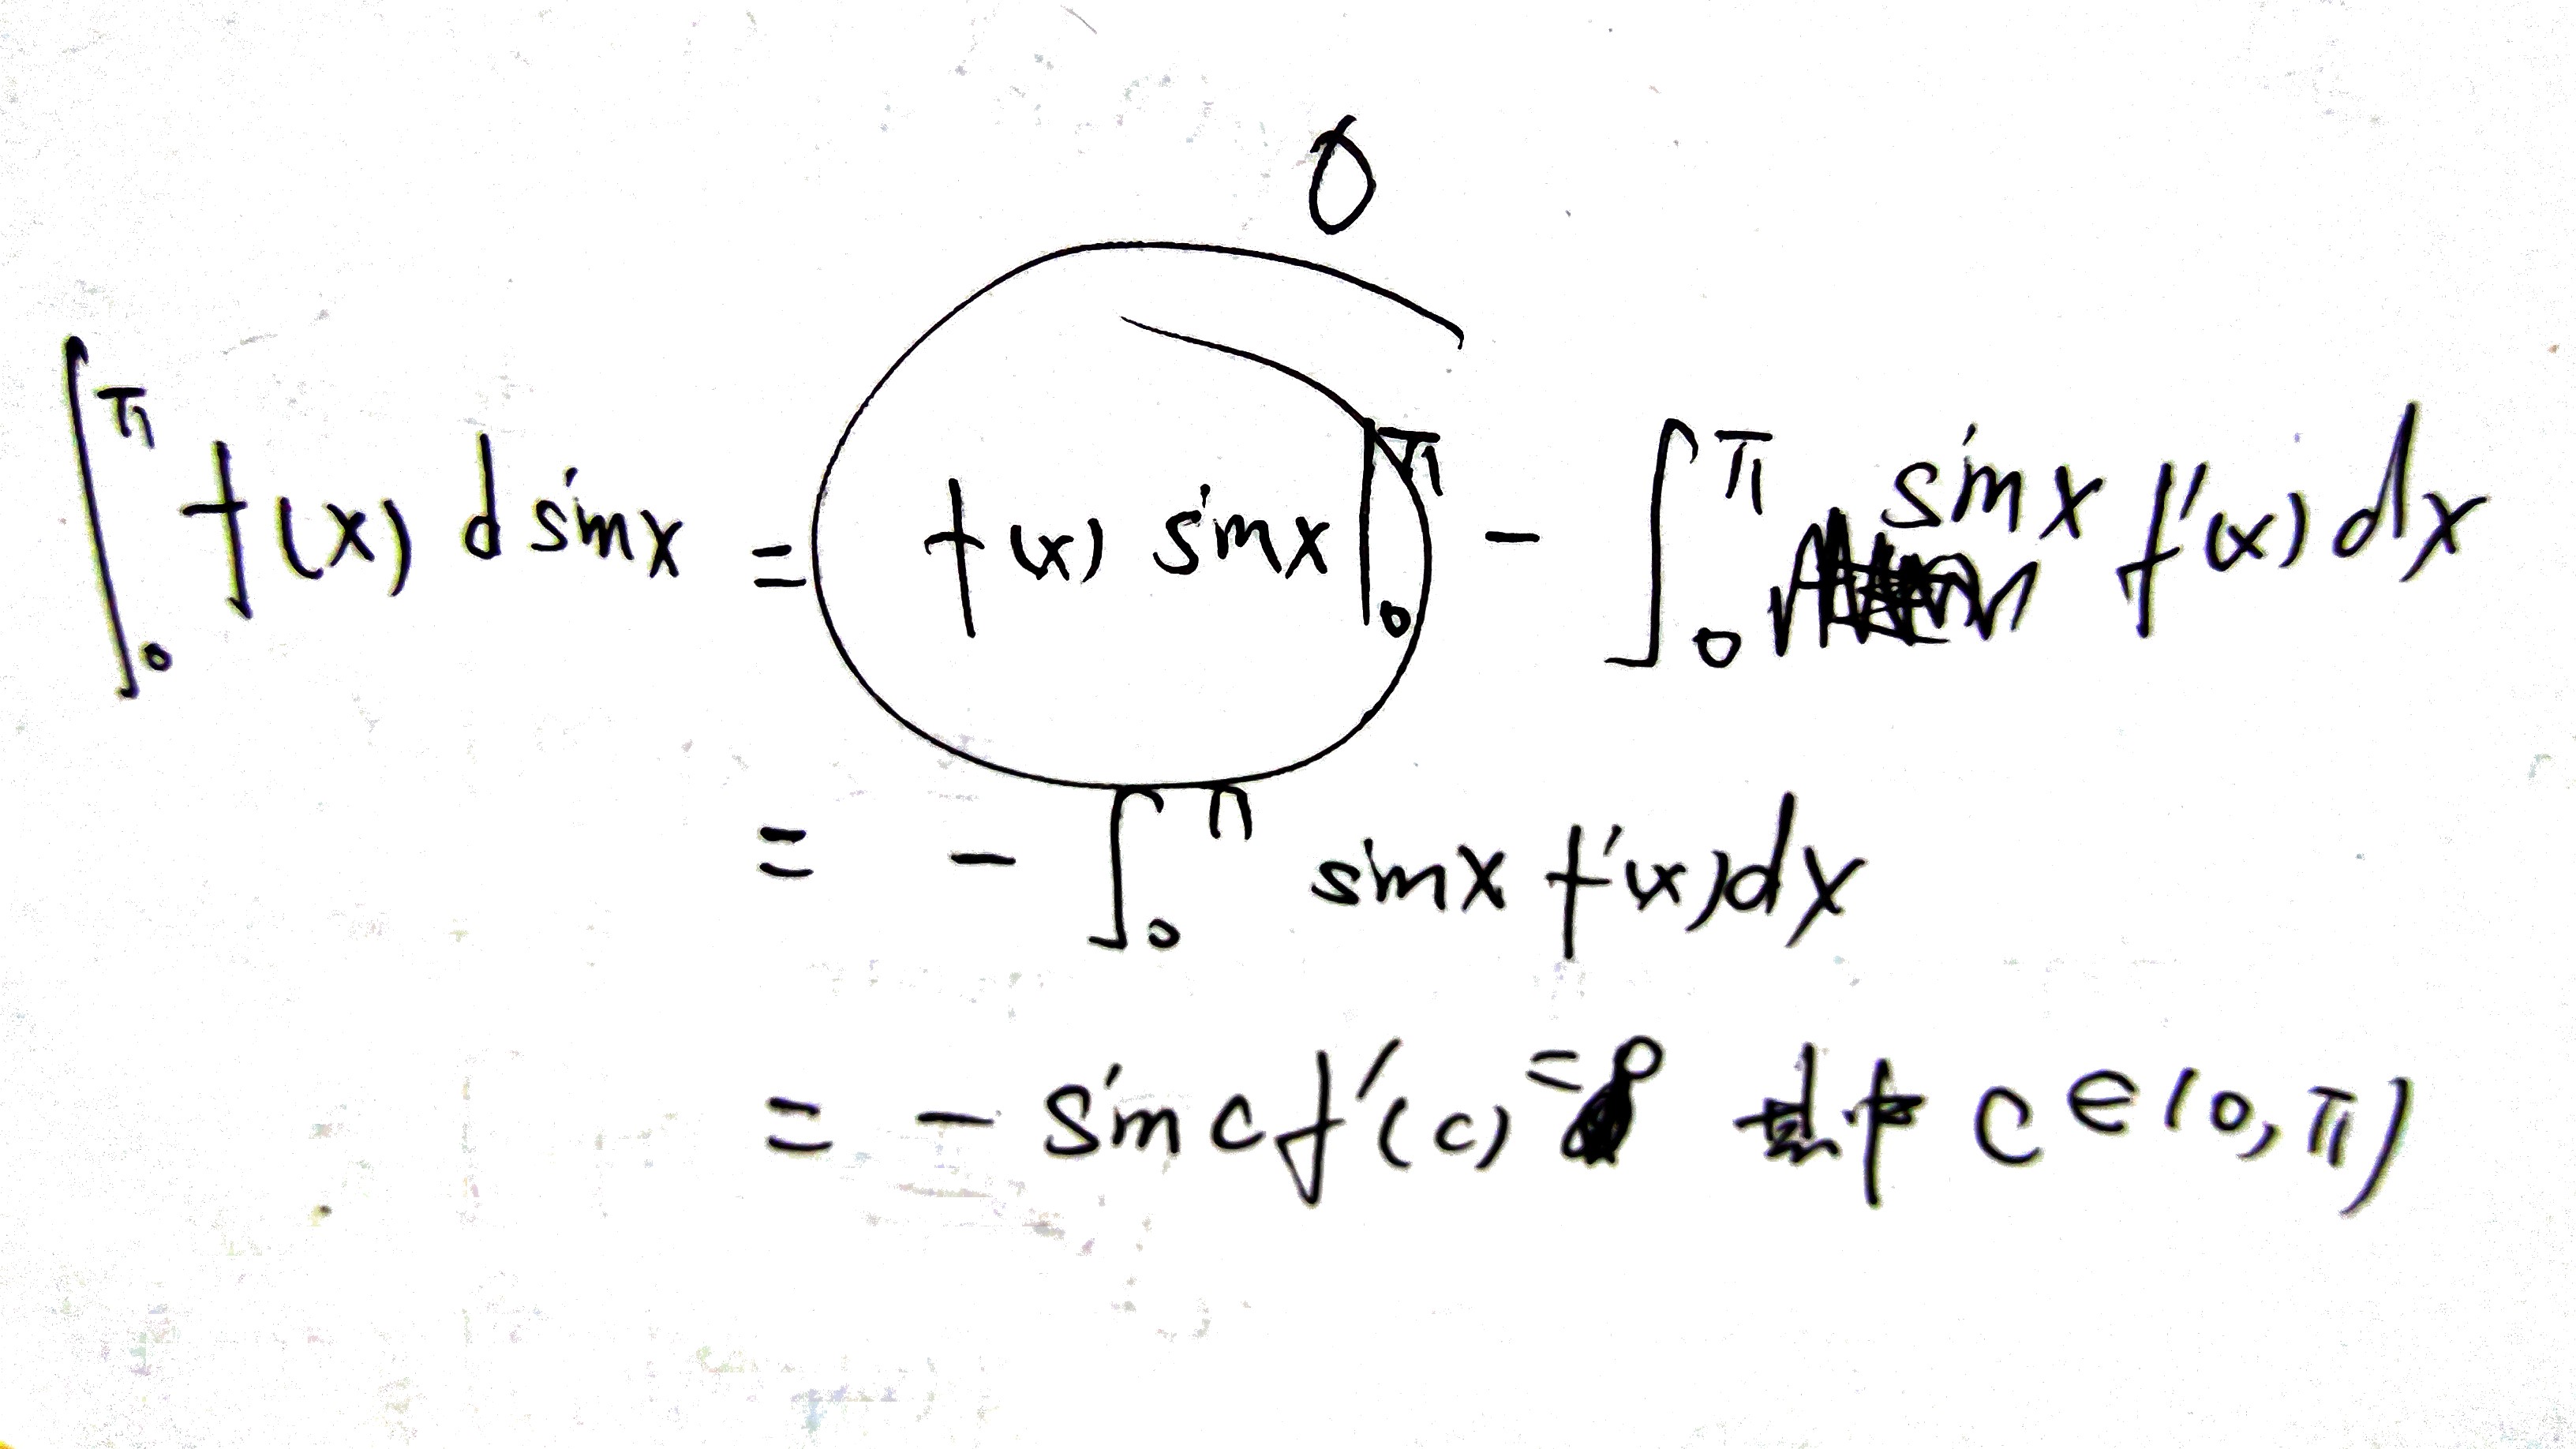 0
∫₀^π f(x) d sin x = f(x) sin x |₀^π − ∫₀^π sin x f'(x) dx
= − ∫₀^π sin x f'(x) dx
= − sin c f'(c) = 0 其中 c ∈ (0, π)